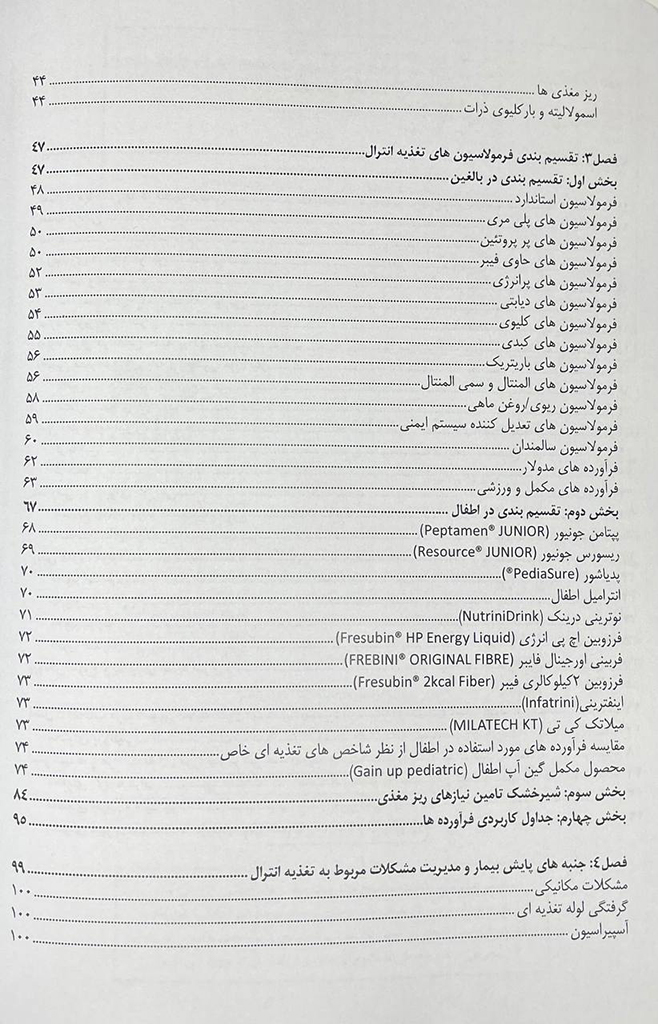 ریز مغذی ها ۴۴
اسمولالیته و بارکلیوی ذرات ۴۴
فصل۳: تقسیم بندی فرمولاسیون های تغذیه انترال ۴۷
بخش اول: تقسیم بندی در بالغین ۴۷
فرمولاسیون استاندارد ۴۸
فرمولاسیون های پلی مری ۴۹
فرمولاسیون های پر پروتئین ۵۰
فرمولاسیون های حاوی فیبر ۵۰
فرمولاسیون های پرانرژی ۵۲
فرمولاسیون های دیابتی ۵۳
فرمولاسیون های کلیوی ۵۴
فرمولاسیون های کبدی ۵۵
فرمولاسیون های باریتریک ۵۶
فرمولاسیون های المنتال و سمی المنتال ۵۶
فرمولاسیون ریوی/روغن ماهی ۵۸
فرمولاسیون های تعدیل کننده سیستم ایمنی ۵۹
فرمولاسیون سالمندان ۶۰
فرآورده های مدولار ۶۲
فرآورده های مکمل و ورزشی ۶۳
بخش دوم: تقسیم بندی در اطفال ۶۷
پپتامن جونیور (Peptamen® JUNIOR) ۶۸
ریسورس جونیور (Resource® JUNIOR) ۶۹
پدیاشور (PediaSure®) ۷۰
انترامیل اطفال ۷۰
نوترینی درینک (NutriniDrink) ۷۱
فرزوبین اچ پی انرژی (Fresubin® HP Energy Liquid) ۷۲
فربینی اورجینال فایبر (FREBINI® ORIGINAL FIBRE) ۷۲
فرزوبین ۲کیلوکالری فیبر (Fresubin® 2kcal Fiber) ۷۳
اینفترینی(Infatrini) ۷۳
میلاتک کی تی (MILATECH KT) ۷۳
مقایسه فرآورده های مورد استفاده در اطفال از نظر شاخص های تغذیه ای خاص ۷۴
محصول مکمل گین آپ اطفال (Gain up pediatric) ۷۴
بخش سوم: شیرخشک تامین نیازهای ریز مغذی ۸۴
بخش چهارم: جداول کاربردی فرآورده ها ۹۵
فصل٤: جنبه های پایش بیمار و مدیریت مشکلات مربوط به تغذیه انترال ۹۹
مشکلات مکانیکی ۱۰۰
گرفتگی لوله تغذیه ای ۱۰۰
آسپیراسیون ۱۰۰